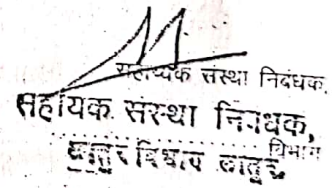 सहाय्यक संस्था निबंधक,
सहायक संस्था निबंधक,
विभाग
लातुर विभाग लातुर